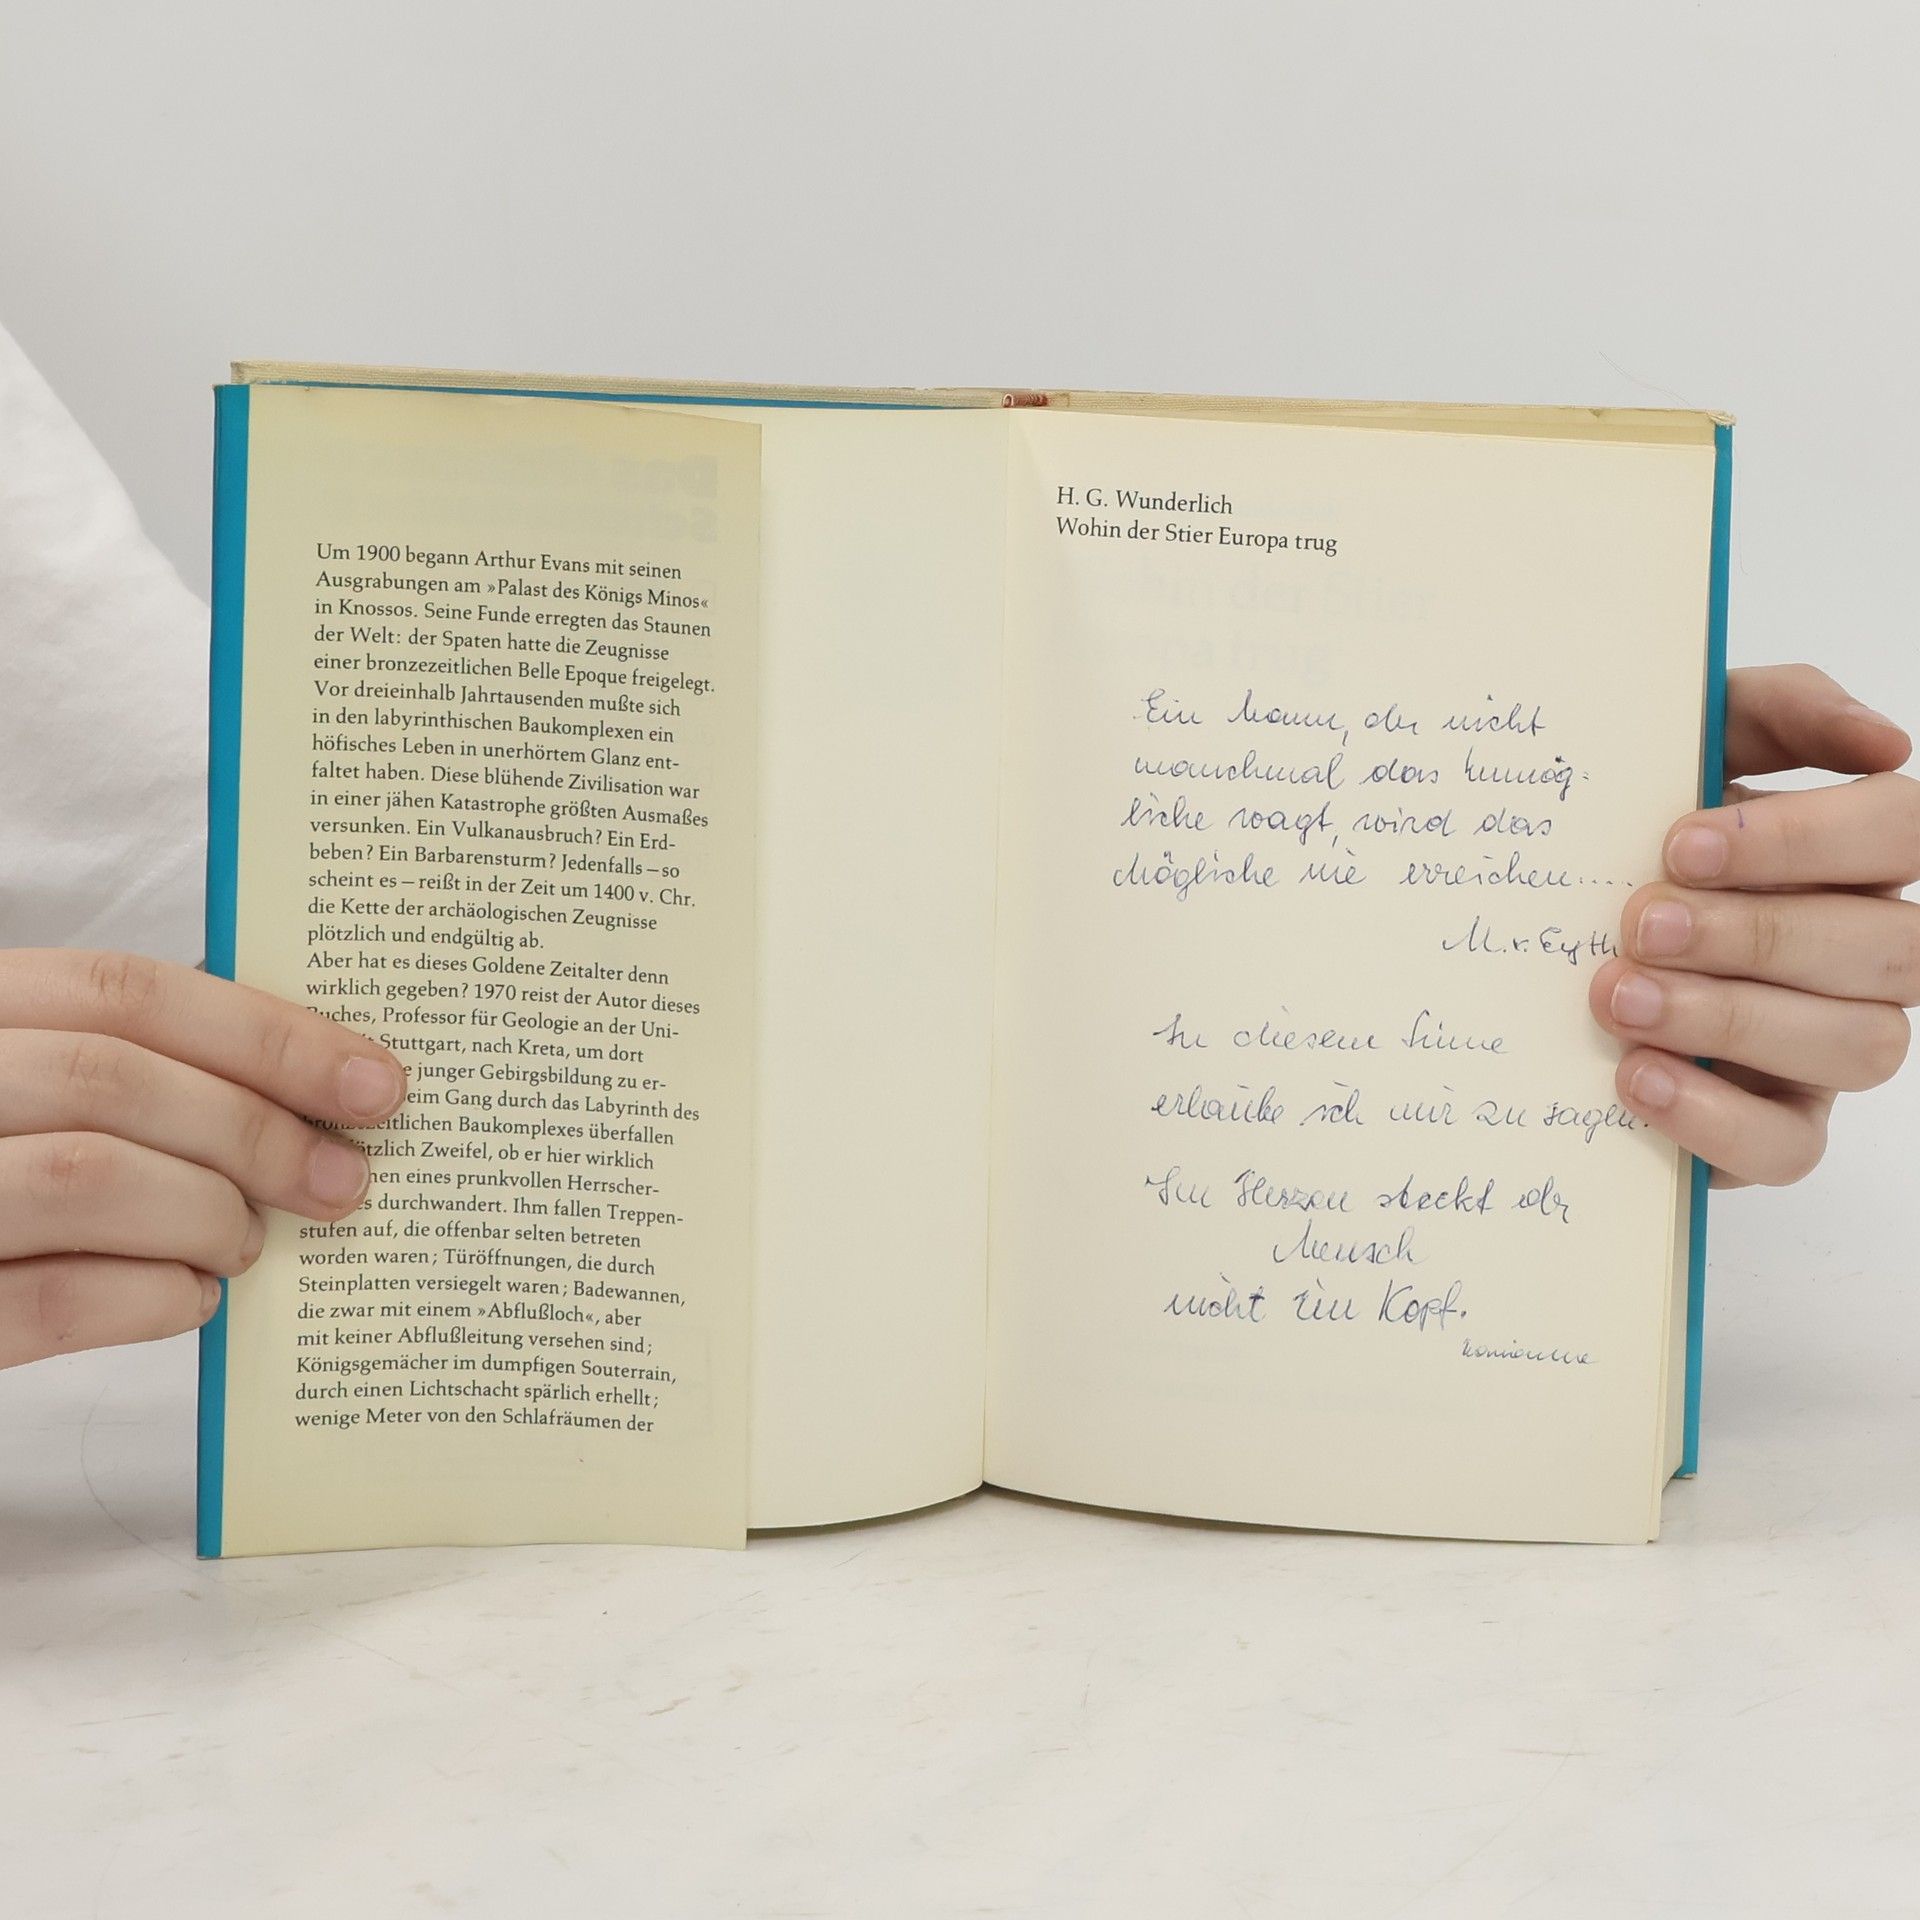 Um 1900 begann Arthur Evans mit seinen
Ausgrabungen am »Palast des Königs Minos«
in Knossos. Seine Funde erregten das Staunen
der Welt: der Spaten hatte die Zeugnisse
einer bronzezeitlichen Belle Epoque freigelegt.
Vor dreieinhalb Jahrtausenden mußte sich
in den labyrinthischen Baukomplexen ein
höfisches Leben in unerhörtem Glanz ent-
faltet haben. Diese blühende Zivilisation war
in einer jähen Katastrophe größten Ausmaßes
versunken. Ein Vulkanausbruch? Ein Erd-
beben? Ein Barbarensturm? Jedenfalls – so
scheint es – reißt in der Zeit um 1400 v. Chr.
die Kette der archäologischen Zeugnisse
plötzlich und endgültig ab.
Aber hat es dieses Goldene Zeitalter denn
wirklich gegeben? 1970 reist der Autor dieses
Buches, Professor für Geologie an der Uni-
Stuttgart, nach Kreta, um dort
junger Gebirgsbildung zu er-
eim Gang durch das Labyrinth des
bronzezeitlichen Baukomplexes überfallen
ötzlich Zweifel, ob er hier wirklich
eines prunkvollen Herrscher-
durchwandert. Ihm fallen Treppen-
stufen auf, die offenbar selten betreten
worden waren; Türöffnungen, die durch
Steinplatten versiegelt waren; Badewannen,
die zwar mit einem »Abflußloch«, aber
mit keiner Abflußleitung versehen sind;
Königsgemächer im dumpfigen Souterrain,
durch einen Lichtschacht spärlich erhellt;
wenige Meter von den Schlafräumen der
H. G. Wunderlich
Wohin der Stier Europa trug
Ein Mann, der nicht
manchmal das Unmög-
liche wagt, wird das
Mögliche nie erreichen....
M. v. Eyth
In diesem Sinne
erlaube ich mir zu sagen:
Im Herzen steckt der
Mensch
nicht im Kopf.